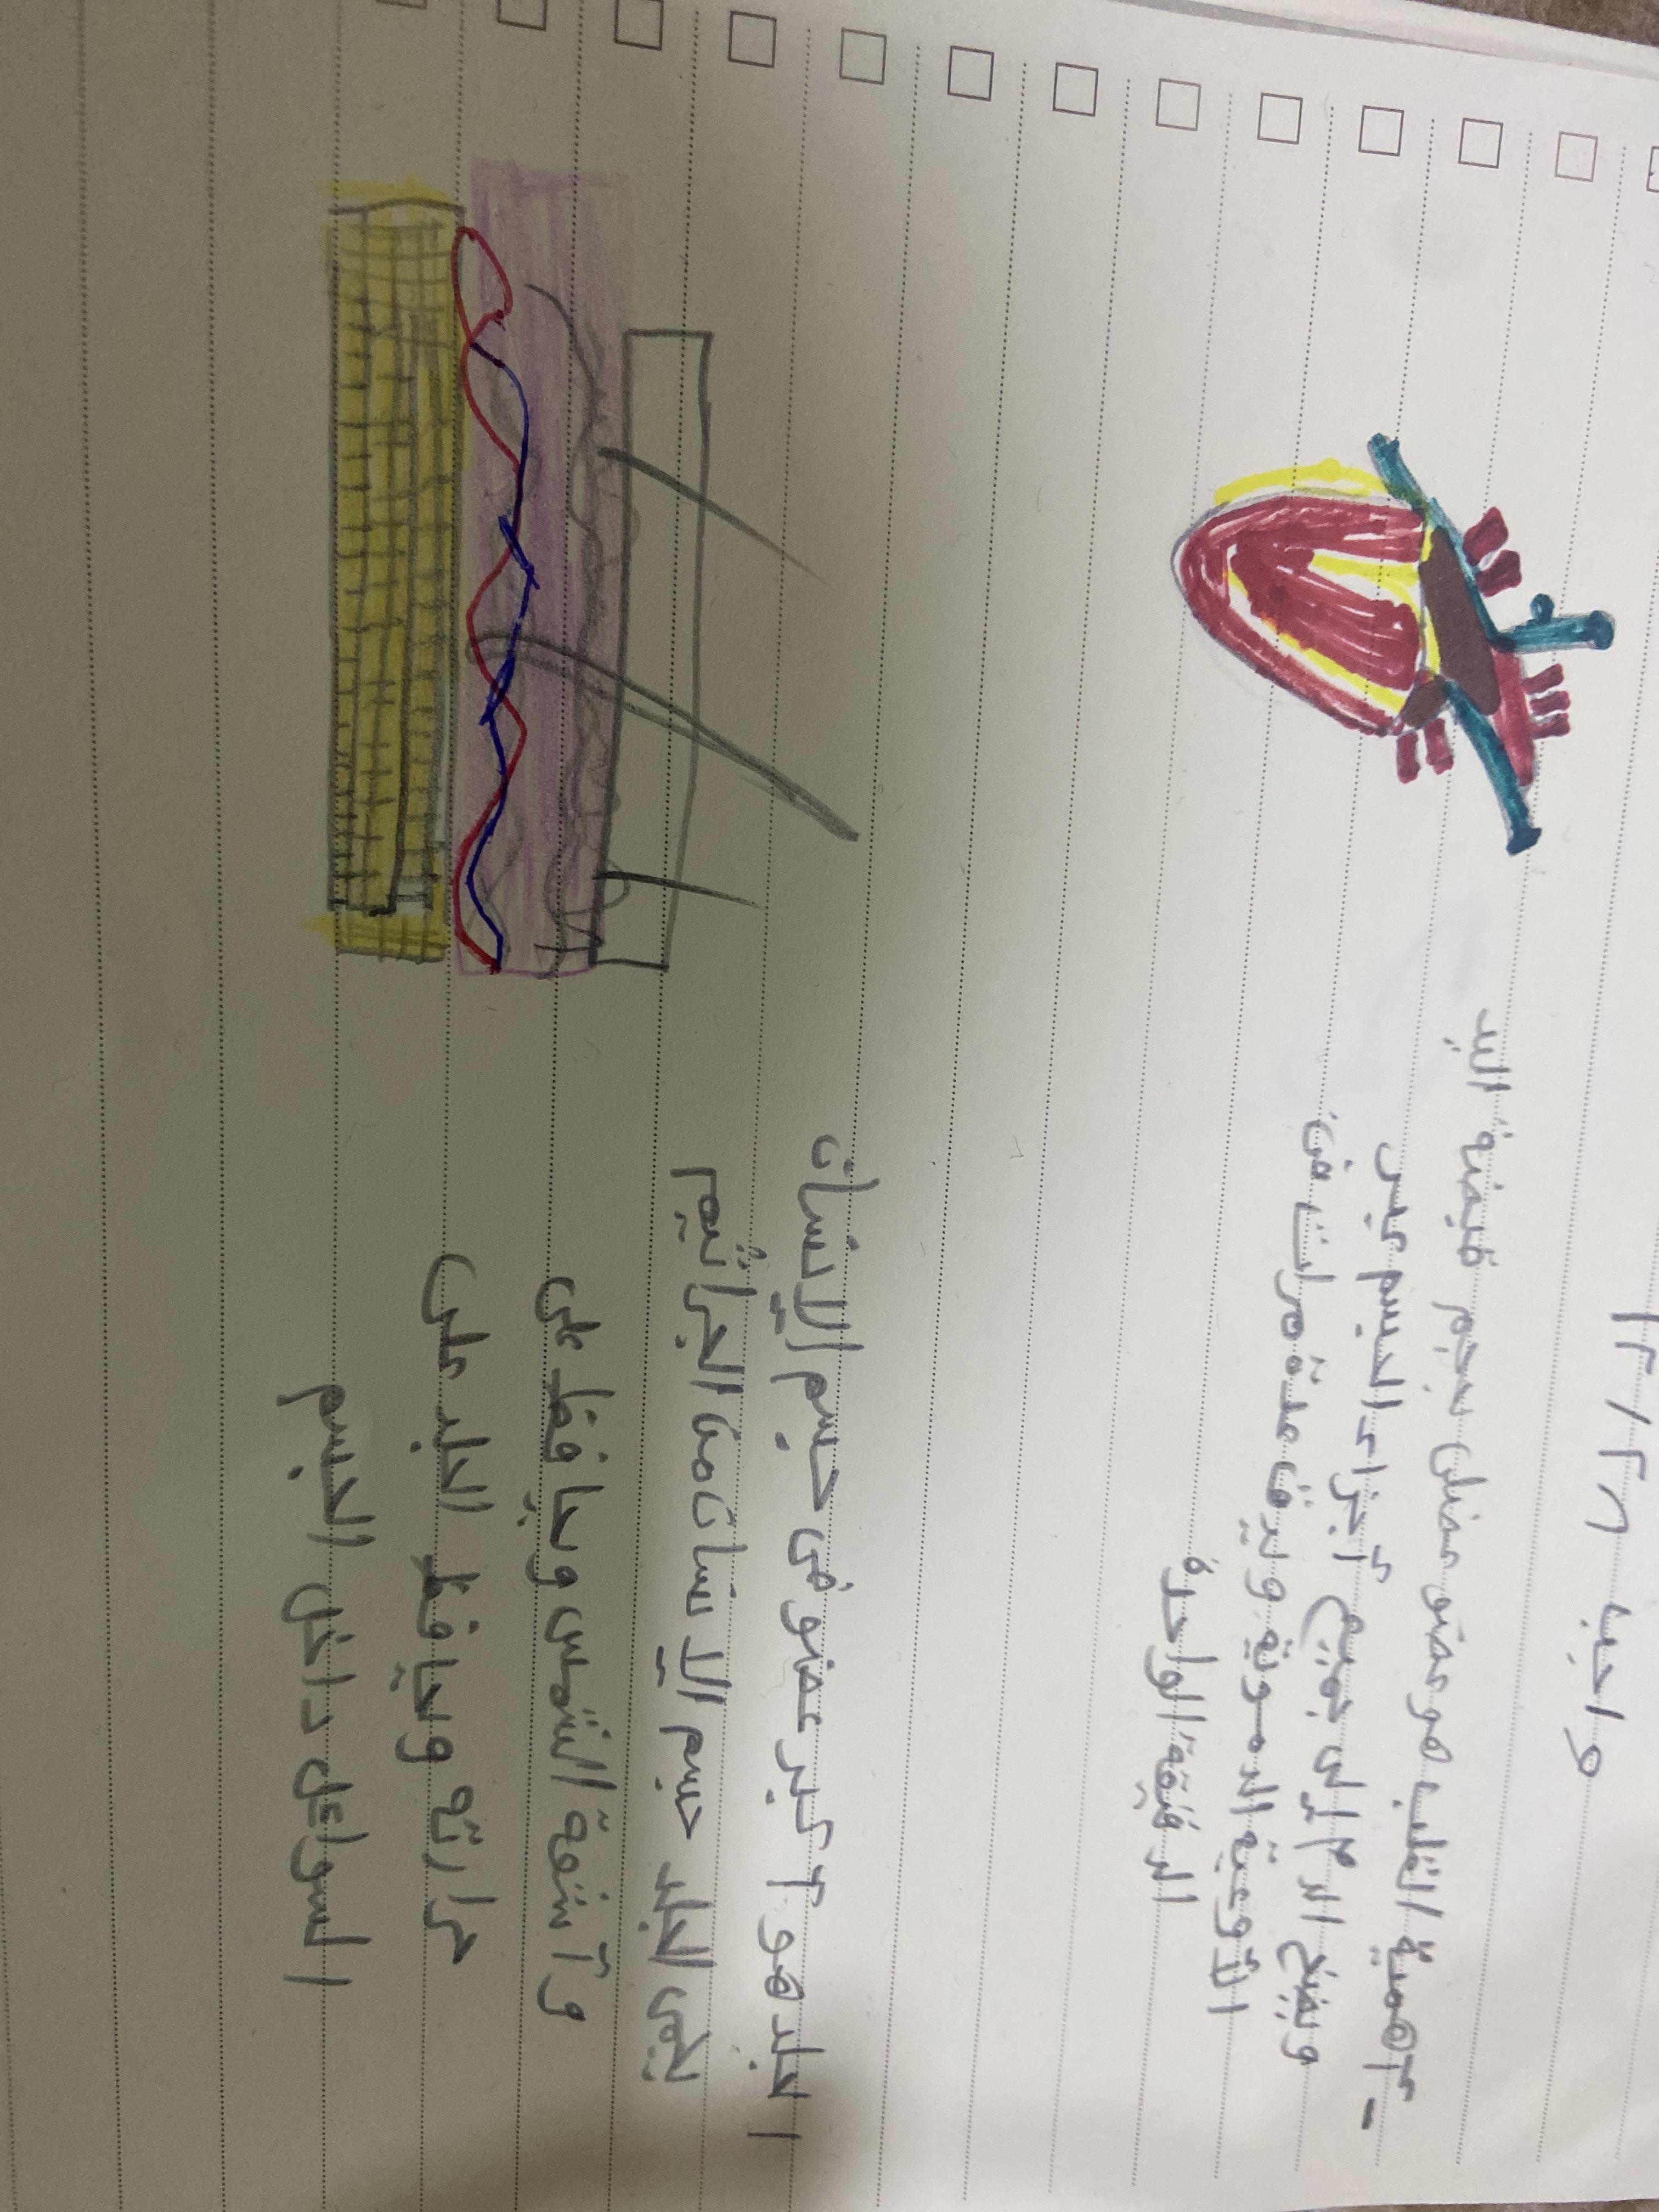 واجب ١٢/٢٨
- أهمية القلب هو عضو عضلي بحجم قبضة اليد
ويضخ الدم إلى جميع أجزاء الجسم عبر
الأوعية الدموية ويدق عدة مرات في
الدقيقة الواحدة
الجلد هو آكبر عضو في جسم الإنسان
يحمي الجلد جسم الإنسان من الجراثيم
و آشعة الشمس ويحافظ على
حرارته ويحافظ الجلد على
السوائل داخل الجسم